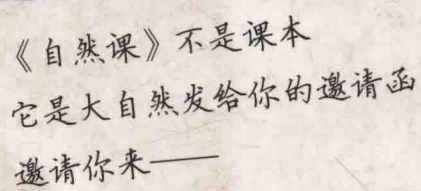 《自然课》不是课本
它是大自然发给你的邀请函
邀请你来——